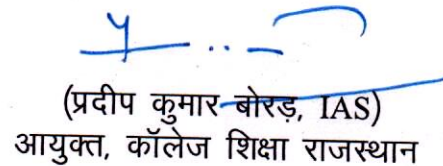 (प्रदीप कुमार बोरड़, IAS)
आयुक्त, कॉलेज शिक्षा राजस्थान